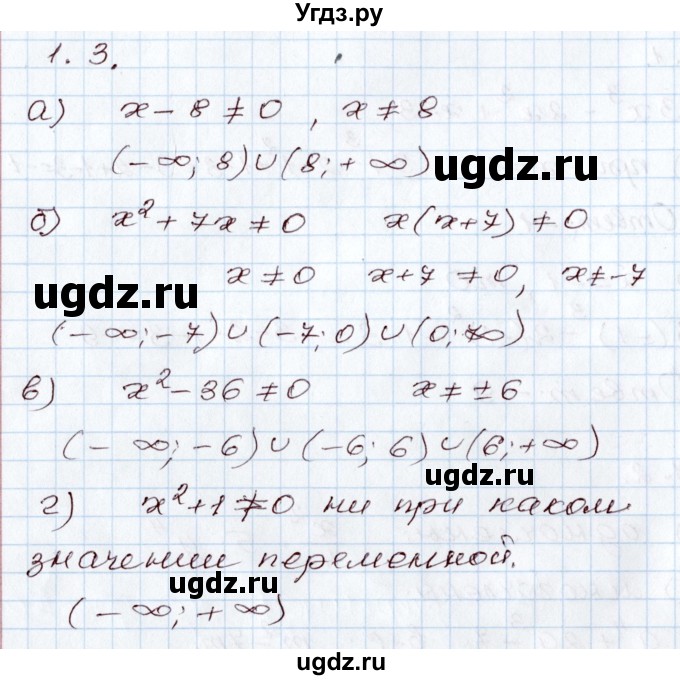 Угдз.ру
1.3.
а) x − 8 ≠ 0, x ≠ 8
(−∞; 8) ∪ (8; +∞)
ugdz.ru
б) x² + 7x ≠ 0 x(x+7) ≠ 0
x ≠ 0 x+7 ≠ 0, x ≠ −7
ugdz.ru
(−∞; −7) ∪ (−7; 0) ∪ (0; ∞)
в) x² − 36 ≠ 0 x ≠ ±6
(−∞; −6) ∪ (−6; 6) ∪ (6; +∞)
ugdz.ru
г) x² + 1 ≠ 0 ни при каком
значении переменной.
ugdz.ru
(−∞; +∞)
ugdz.ru